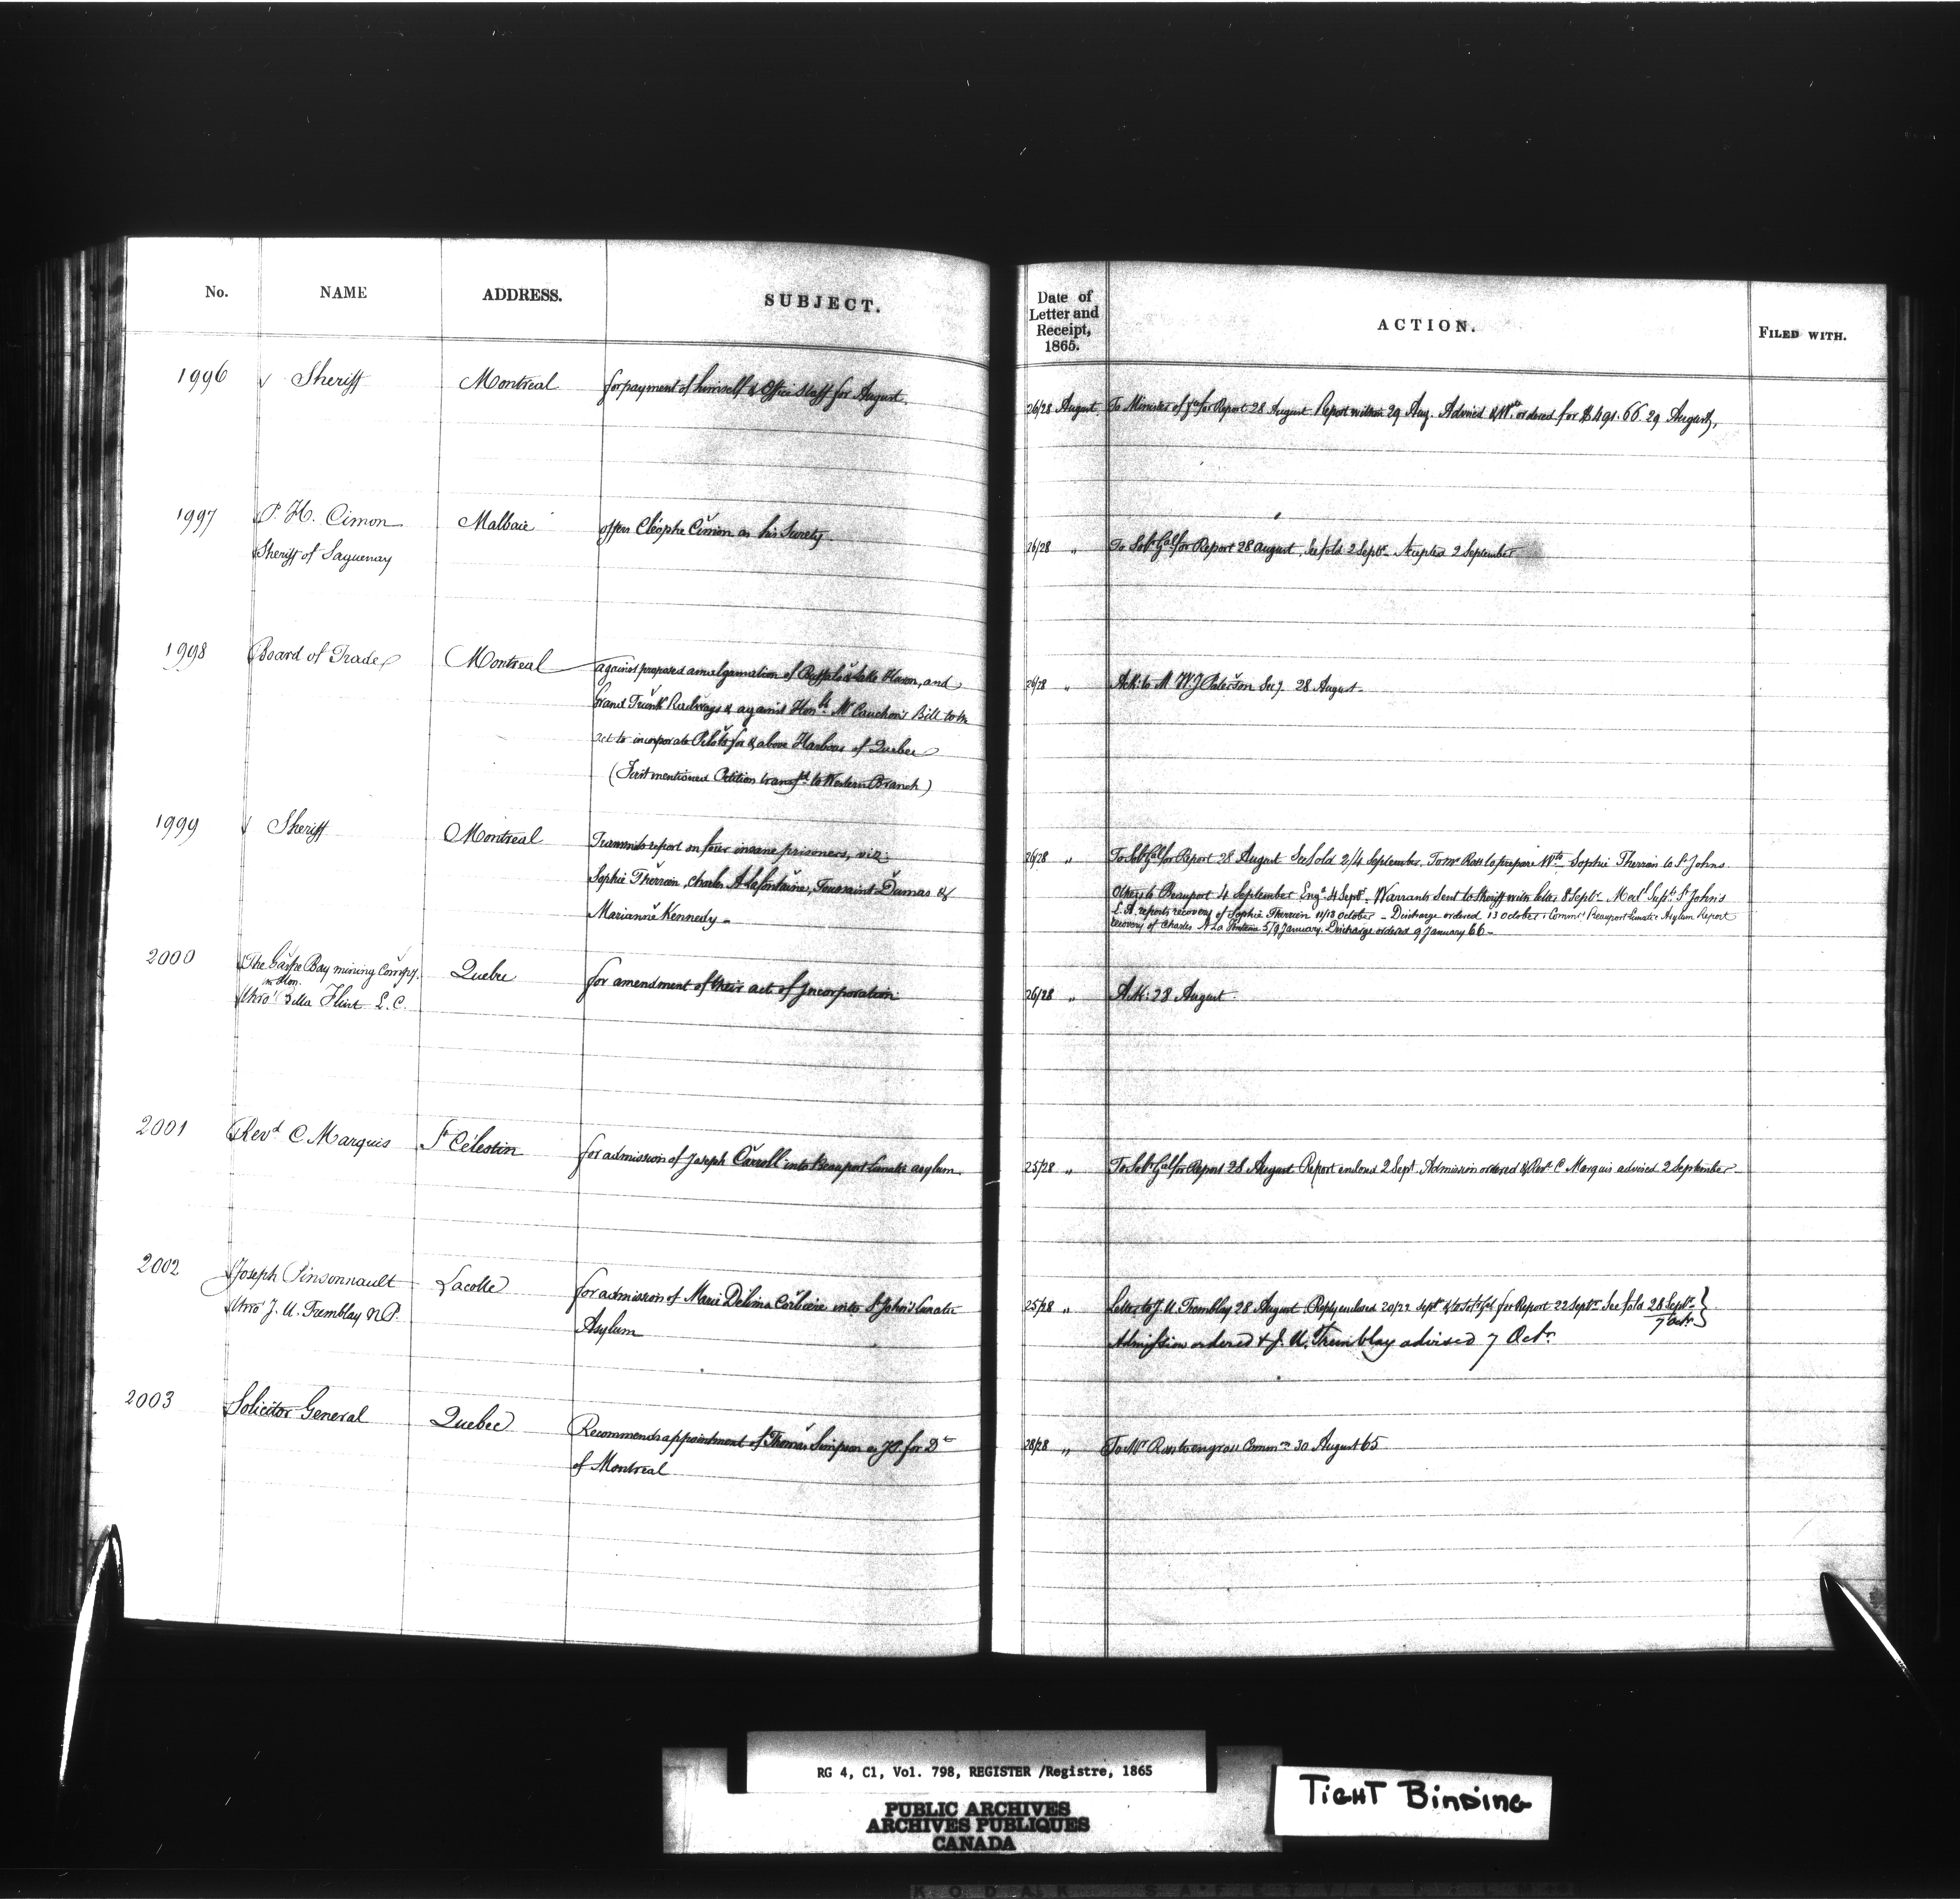 No. NAME ADDRESS. SUBJECT.
Date of Letter and Receipt, 1865. ACTION. FILED WITH.
1996 Sheriff Montreal for payment of himself & Office Staff for August.
26/28 August To Minister of for Report 28 August Report within 29 Aug. Advised & Wt. ordered for $491.66. 29 August,
1997 P. H. Cimon Malbaie offers Cléophe Cimon as his Surety
Sheriff of Saguenay
26/28 " To Solr. Genl for Report 28 August, See fold 2 Septr. Accepted 2 September
1998 Board of Trade Montreal against proposed amalgamation of Buffalo & Lake Huron, and
Grand Trunk Railways & against Honble Mr Cauchon's Bill to
act to incorporate Pilots for & above Harbour of Quebec
(First mentioned Petition transfd. to Western Branch)
26/28 " Ack: to M W J Paterson Secy. 28 August.
1999 Sheriff Montreal Transmits report on four insane prisoners, viz:
Sophie Therrien, Charles A Lafontaine, Toussaint Dumas &
Marianne Kennedy
26/28 " To Solr Genl for Report 28 August See fold 2/4 September. To Mr Ross to prepare Wts Sophie Therrien to St Johns
Others to Beauport 4 September Engd. 4 Septr. Warrants sent to Sheriff with letter 8 Septr. Medl Supt. St John's
L.A. reports recovery of Sophie Therrien 11/13 October - Discharge ordered 13 October. Commrs Beauport Lunatic Asylum Report
recovery of Charles A La Fontaine 5/9 January. Discharge ordered 9 January 66 -
2000 The Gaspe Bay mining Compy. Quebec for amendment of their act of Incorporation
Hon.
thro' Billa Flint L.C.
26/28 " Ack: 28 August.
2001 Revd C. Marquis St Célestin for admission of Joseph Carroll into Beauport Lunatic asylum
25/28 " To Solr Genl for Report 28 August Report enclosed 2 Sept. Admission ordered & Revd C Marquis advised 2 September
2002 Joseph Pinsonnault Lacolle for admission of Marie Delima Corbiere into St John's Lunatic
thro' J. U. Tremblay N.P. Asylum
25/28 " Letter to J. U. Tremblay 28 August. Reply enclosed 20/22 Septr & to Solr Genl for Report 22 Septr See fold 28 Septr.
7 Octr.
Admission ordered & J. U. Tremblay advised 7 Octr.
2003 Solicitor General Quebec Recommends appointment of Thomas Simpson as J.P. for Dt
of Montreal
28/28 " To Mr Ross to engross Commn 30 August 65
RG 4, C1, Vol. 798, REGISTER /Registre, 1865
PUBLIC ARCHIVES
ARCHIVES PUBLIQUES
CANADA
TIGHT BINDING